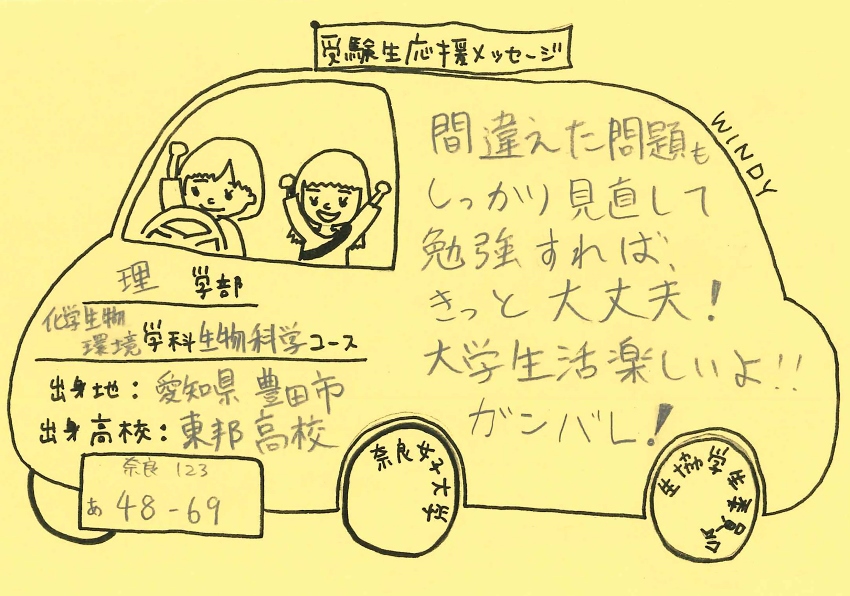 受験生応援メッセージ
WINDY
間違えた問題も
しっかり見直して
勉強すれば、
きっと大丈夫！
大学生活楽しいよ!!
ガンバレ！
理 学部
化学生物
環境学科生物科学コース
出身地：愛知県豊田市
出身高校：東邦高校
奈良 123
あ 48-69
奈良女子大学
生協学生委員会